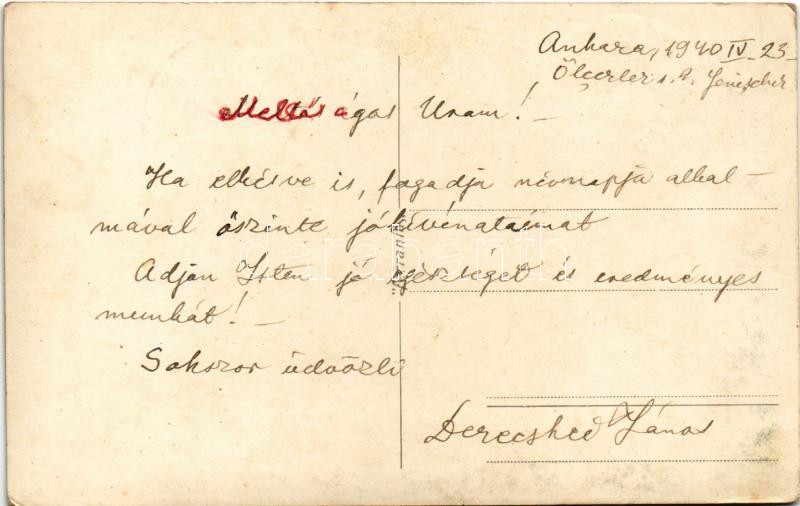 Ankara, 1940 IV. 23.
Méltóságos Uram! –
Ha elkésve is, fogadja névnapja alkal-
mával őszinte jókívánataimat
Adjon Isten jó egészséget és eredményes
munkát! –
Sokszor üdvözli
János
darabanth